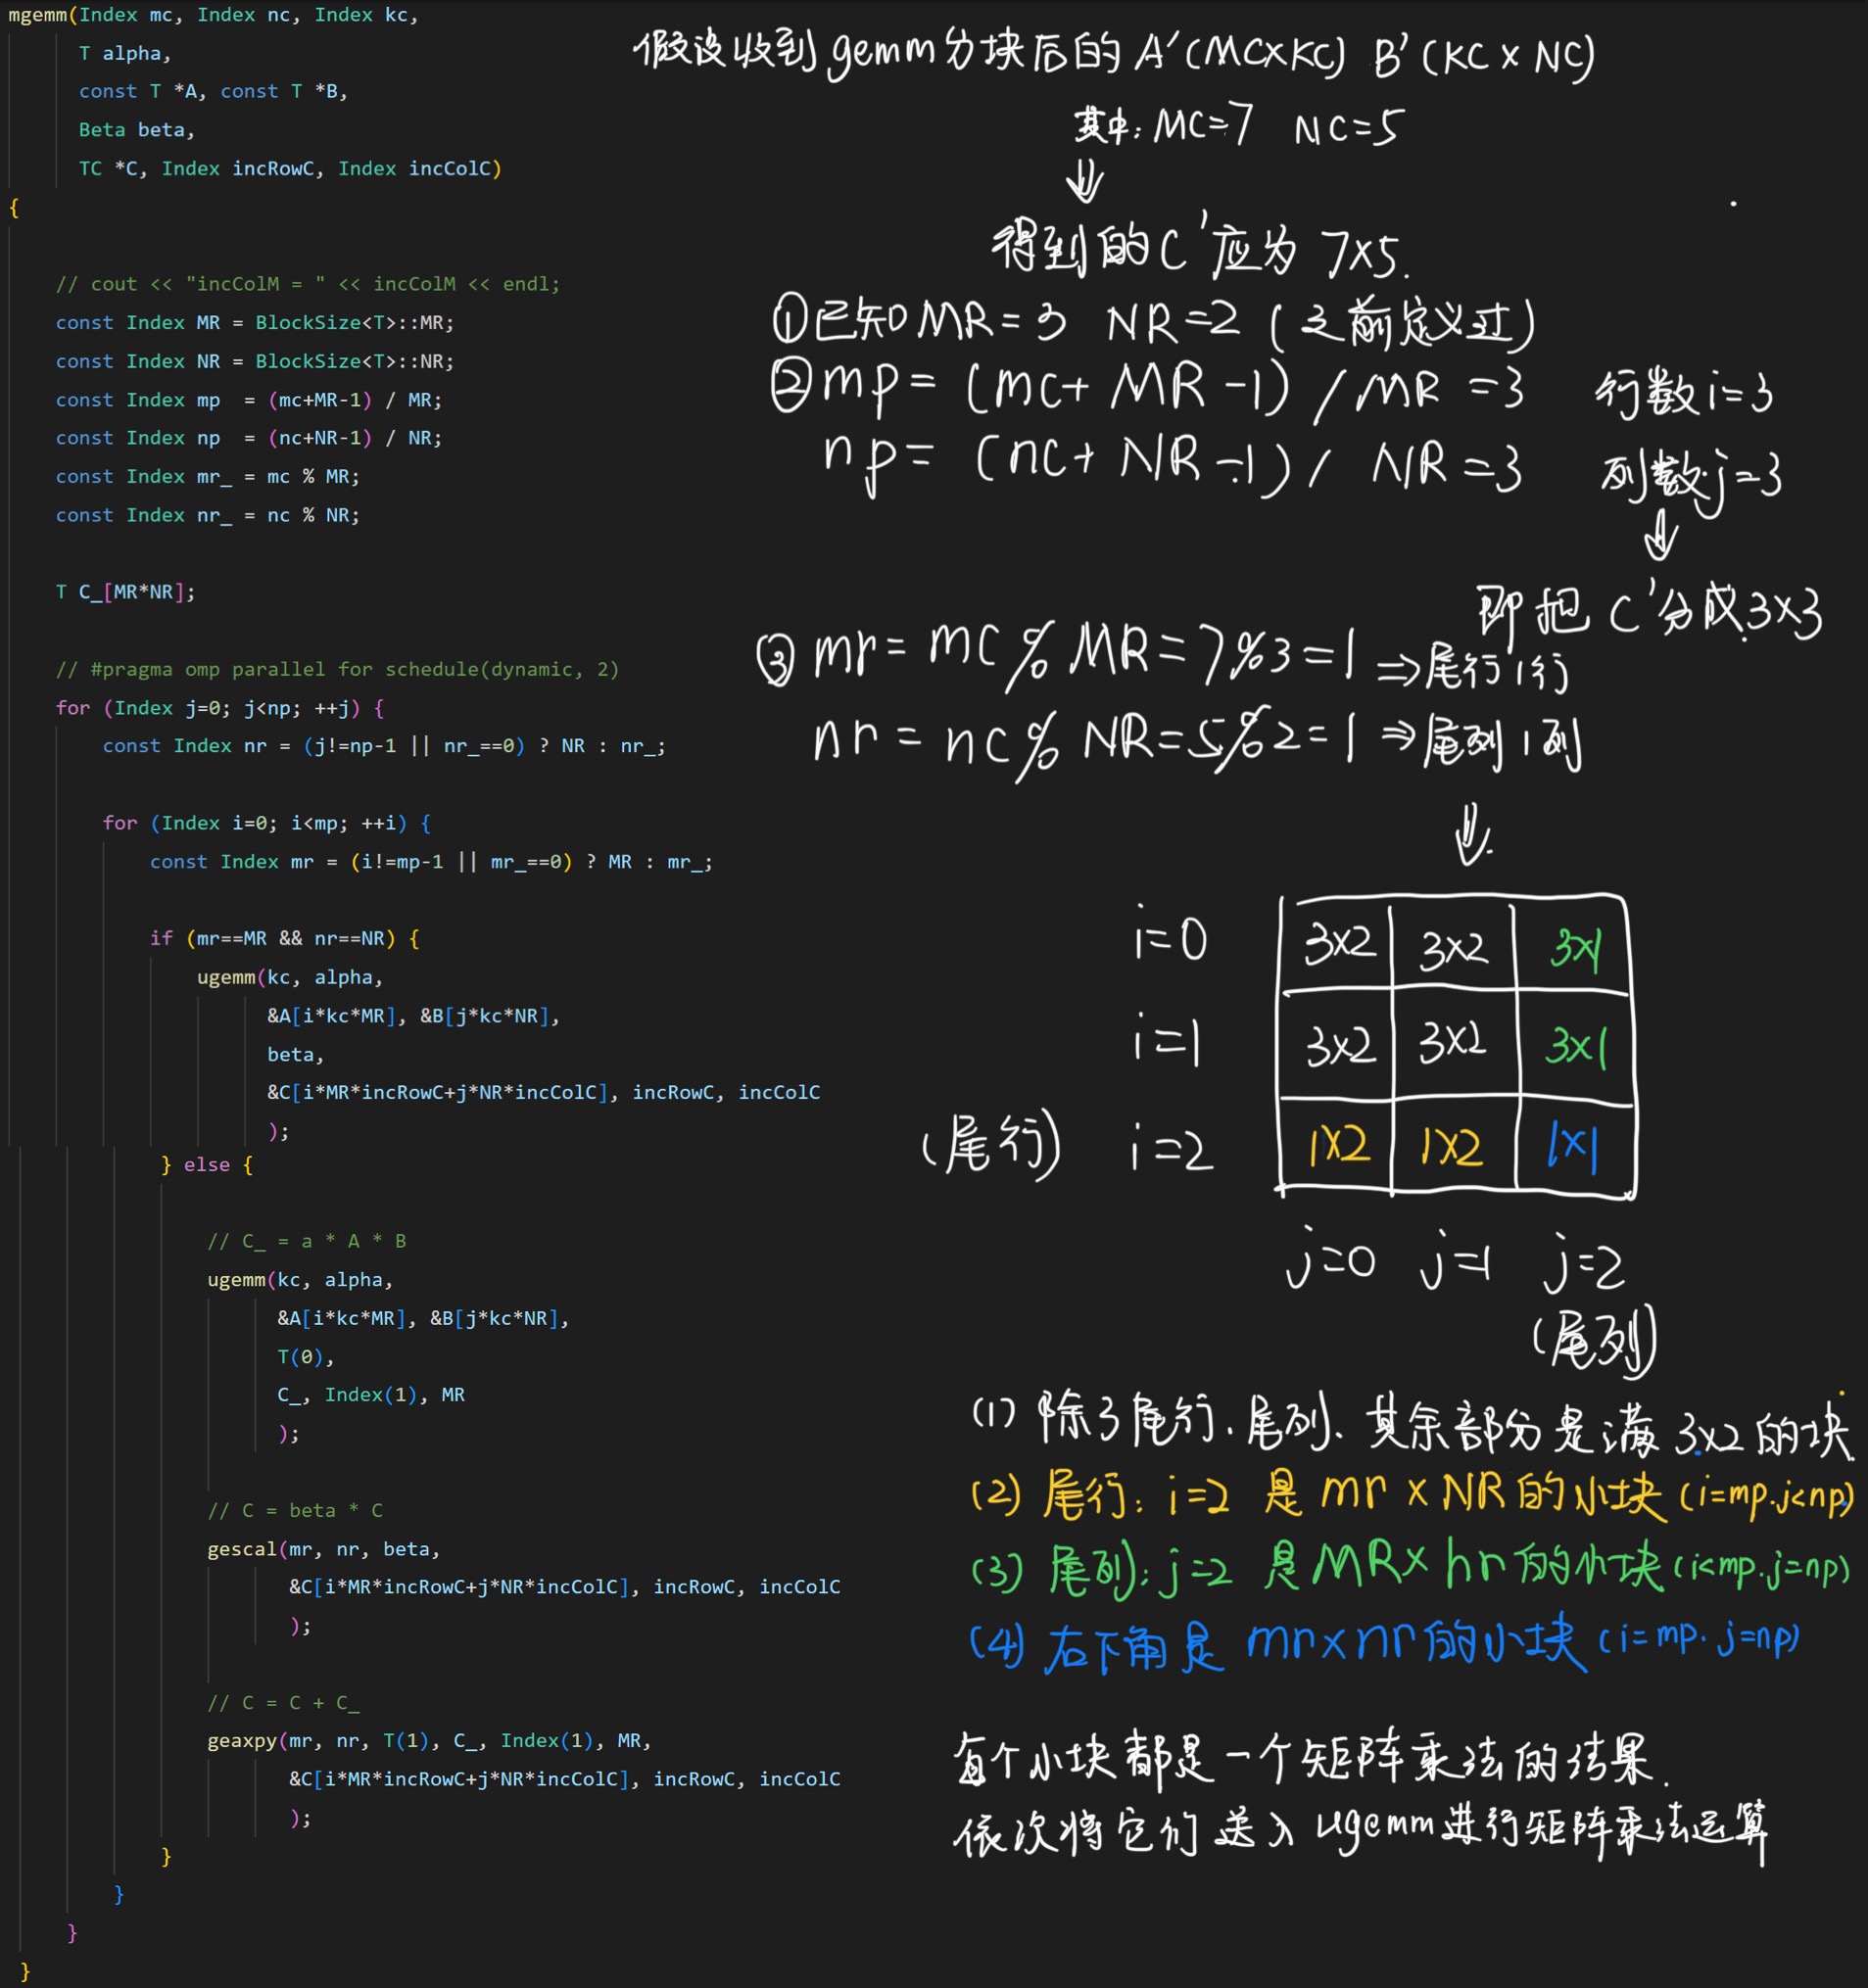 mgemm(Index mc, Index nc, Index kc,
T alpha,
const T *A, const T *B,
Beta beta,
TC *C, Index incRowC, Index incColC)
{
// cout << "incColM = " << incColM << endl;
const Index MR = BlockSize<T>::MR;
const Index NR = BlockSize<T>::NR;
const Index mp  = (mc+MR-1) / MR;
const Index np  = (nc+NR-1) / NR;
const Index mr_ = mc % MR;
const Index nr_ = nc % NR;
T C_[MR*NR];
// #pragma omp parallel for schedule(dynamic, 2)
for (Index j=0; j<np; ++j) {
const Index nr = (j!=np-1 || nr_==0) ? NR : nr_;
for (Index i=0; i<mp; ++i) {
const Index mr = (i!=mp-1 || mr_==0) ? MR : mr_;
if (mr==MR && nr==NR) {
ugemm(kc, alpha,
&A[i*kc*MR], &B[j*kc*NR],
beta,
&C[i*MR*incRowC+j*NR*incColC], incRowC, incColC
);
} else {
// C_ = a * A * B
ugemm(kc, alpha,
&A[i*kc*MR], &B[j*kc*NR],
T(0),
C_, Index(1), MR
);
// C = beta * C
gescal(mr, nr, beta,
&C[i*MR*incRowC+j*NR*incColC], incRowC, incColC
);
// C = C + C_
geaxpy(mr, nr, T(1), C_, Index(1), MR,
&C[i*MR*incRowC+j*NR*incColC], incRowC, incColC
);
}
}
}
}
假设收到gemm分块后的 A'(MC×KC) B'(KC×NC)
其中: MC=7 NC=5
得到的C'应为 7×5.
①已知MR=3 NR=2 (之前定义过)
②mp= (mc+MR-1)/MR =3 行数i=3
np= (nc+NR-1)/ NR=3 列数j=3
即把 C'分成3×3
③ mr= mc%MR=7%3=1 ⇒尾行1行
nr = nc% NR=5%2=1 ⇒尾列1列
i=0 3×2 3×2 3×1
i=1 3×2 3×2 3×1
(尾行) i=2 1×2 1×2 1×1
j=0 j=1 j=2
(尾列)
(1) 除了尾行、尾列、其余部分是满 3×2的块
(2) 尾行: i=2 是 mr×NR的小块(i=mp.j<np)
(3) 尾列: j=2 是MR×nr的小块(i<mp.j=np)
(4) 右下角是 mr×nr的小块(i=mp.j=np)
每个小块都是一个矩阵乘法的结果.
依次将它们送入ugemm进行矩阵乘法运算